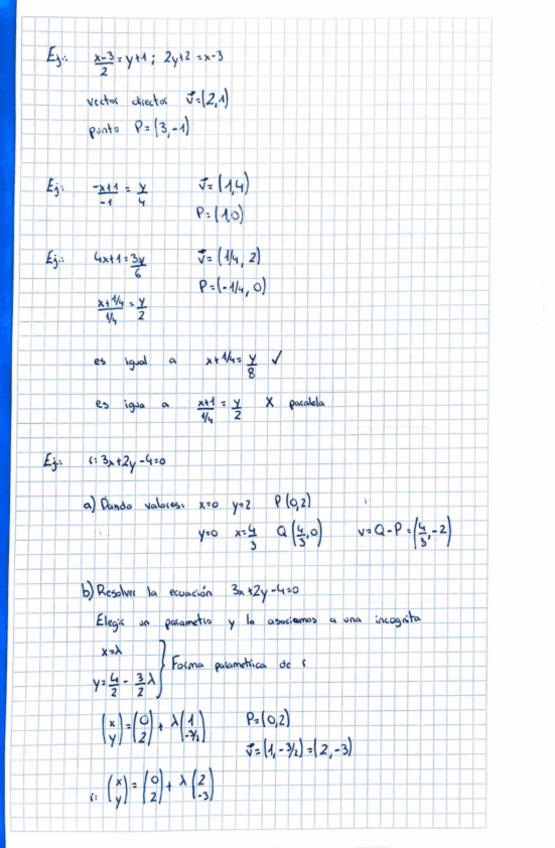 Ej: x-3/2 = y+1 ; 2y+2 = x-3
vector director v⃗=(2,1)
punto P=(3,-1)
Ej: -x+1/-1 = y/4 v⃗=(1,4)
P=(1,0)
Ej: 4x+1=3y/6 v⃗=(1/4, 2)
P=(-1/4, 0)
x+1/4 / 1/4 = y/2
es igual a x+1/4 = y/8 ✓
es igua a x+1 / 1/4 = y/2 X paralela
Ej: r: 3x+2y-4=0
a) Dando valores: x=0 y=2 P(0,2)
y=0 x=4/3 Q(4/3,0) v=Q-P=(4/3,-2)
b) Resolver la ecuación 3x+2y-4=0
Elegir un parametro y lo asociamos a una incognita
x=λ
y=4/2 - 3/2 λ } Forma parametrica de r
(x y)=(0 2)+λ(1 -3/2) P=(0,2)
v⃗=(1,-3/2)=(2,-3)
r: (x y)=(0 2)+λ(2 -3)